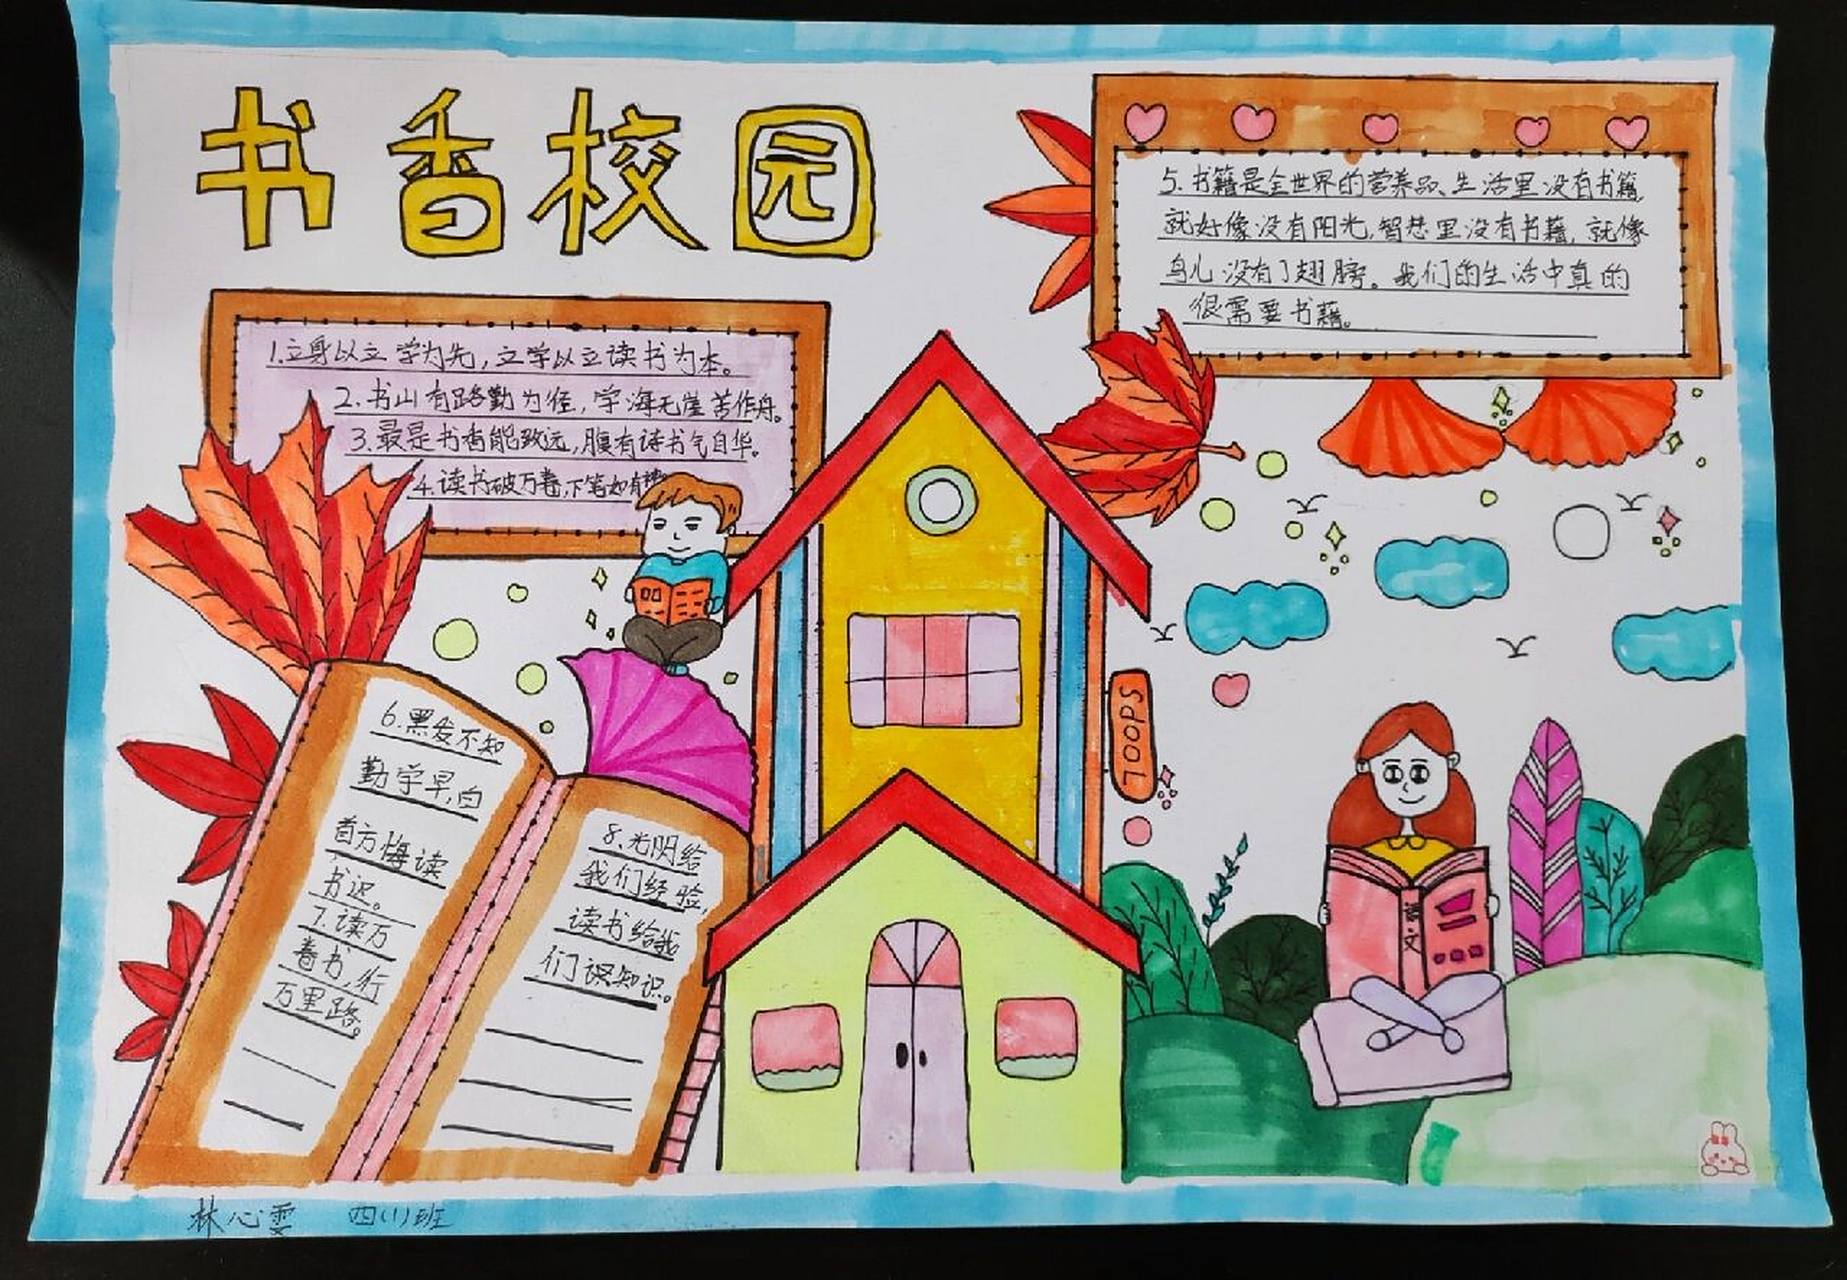 书香校园
1.立身以立学为先,立学以立读书为本。
2.书山有路勤为径,学海无崖苦作舟。
3.最是书香能致远,腹有诗书气自华。
4.读书破万卷,下笔如有
5.书籍是全世界的营养品、生活里没有书籍,
就好像没有阳光,智慧里没有书籍,就像
鸟儿没有了翅膀。我们的生活中真的
很需要书籍。
6.黑发不知
勤学早,白
首方悔读
书迟。
7.读万
卷书,行
万里路。
8.光阴给
我们经验,
读书给我
们课知识。
SLOOL
语文
林心雯 四(1)班